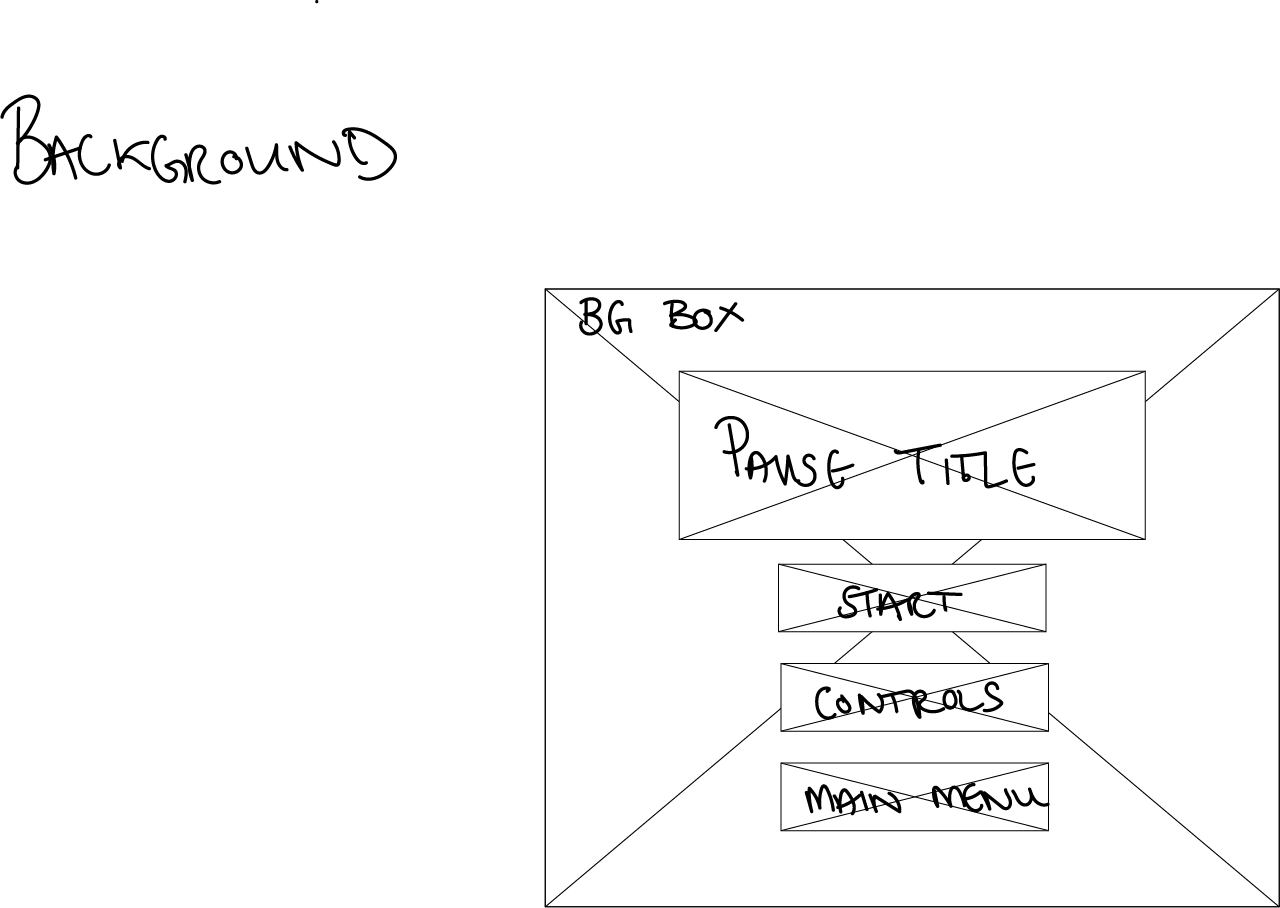 BACKGROUND
BG BOX
PAUSE TITLE
START
CONTROLS
MAIN MENU